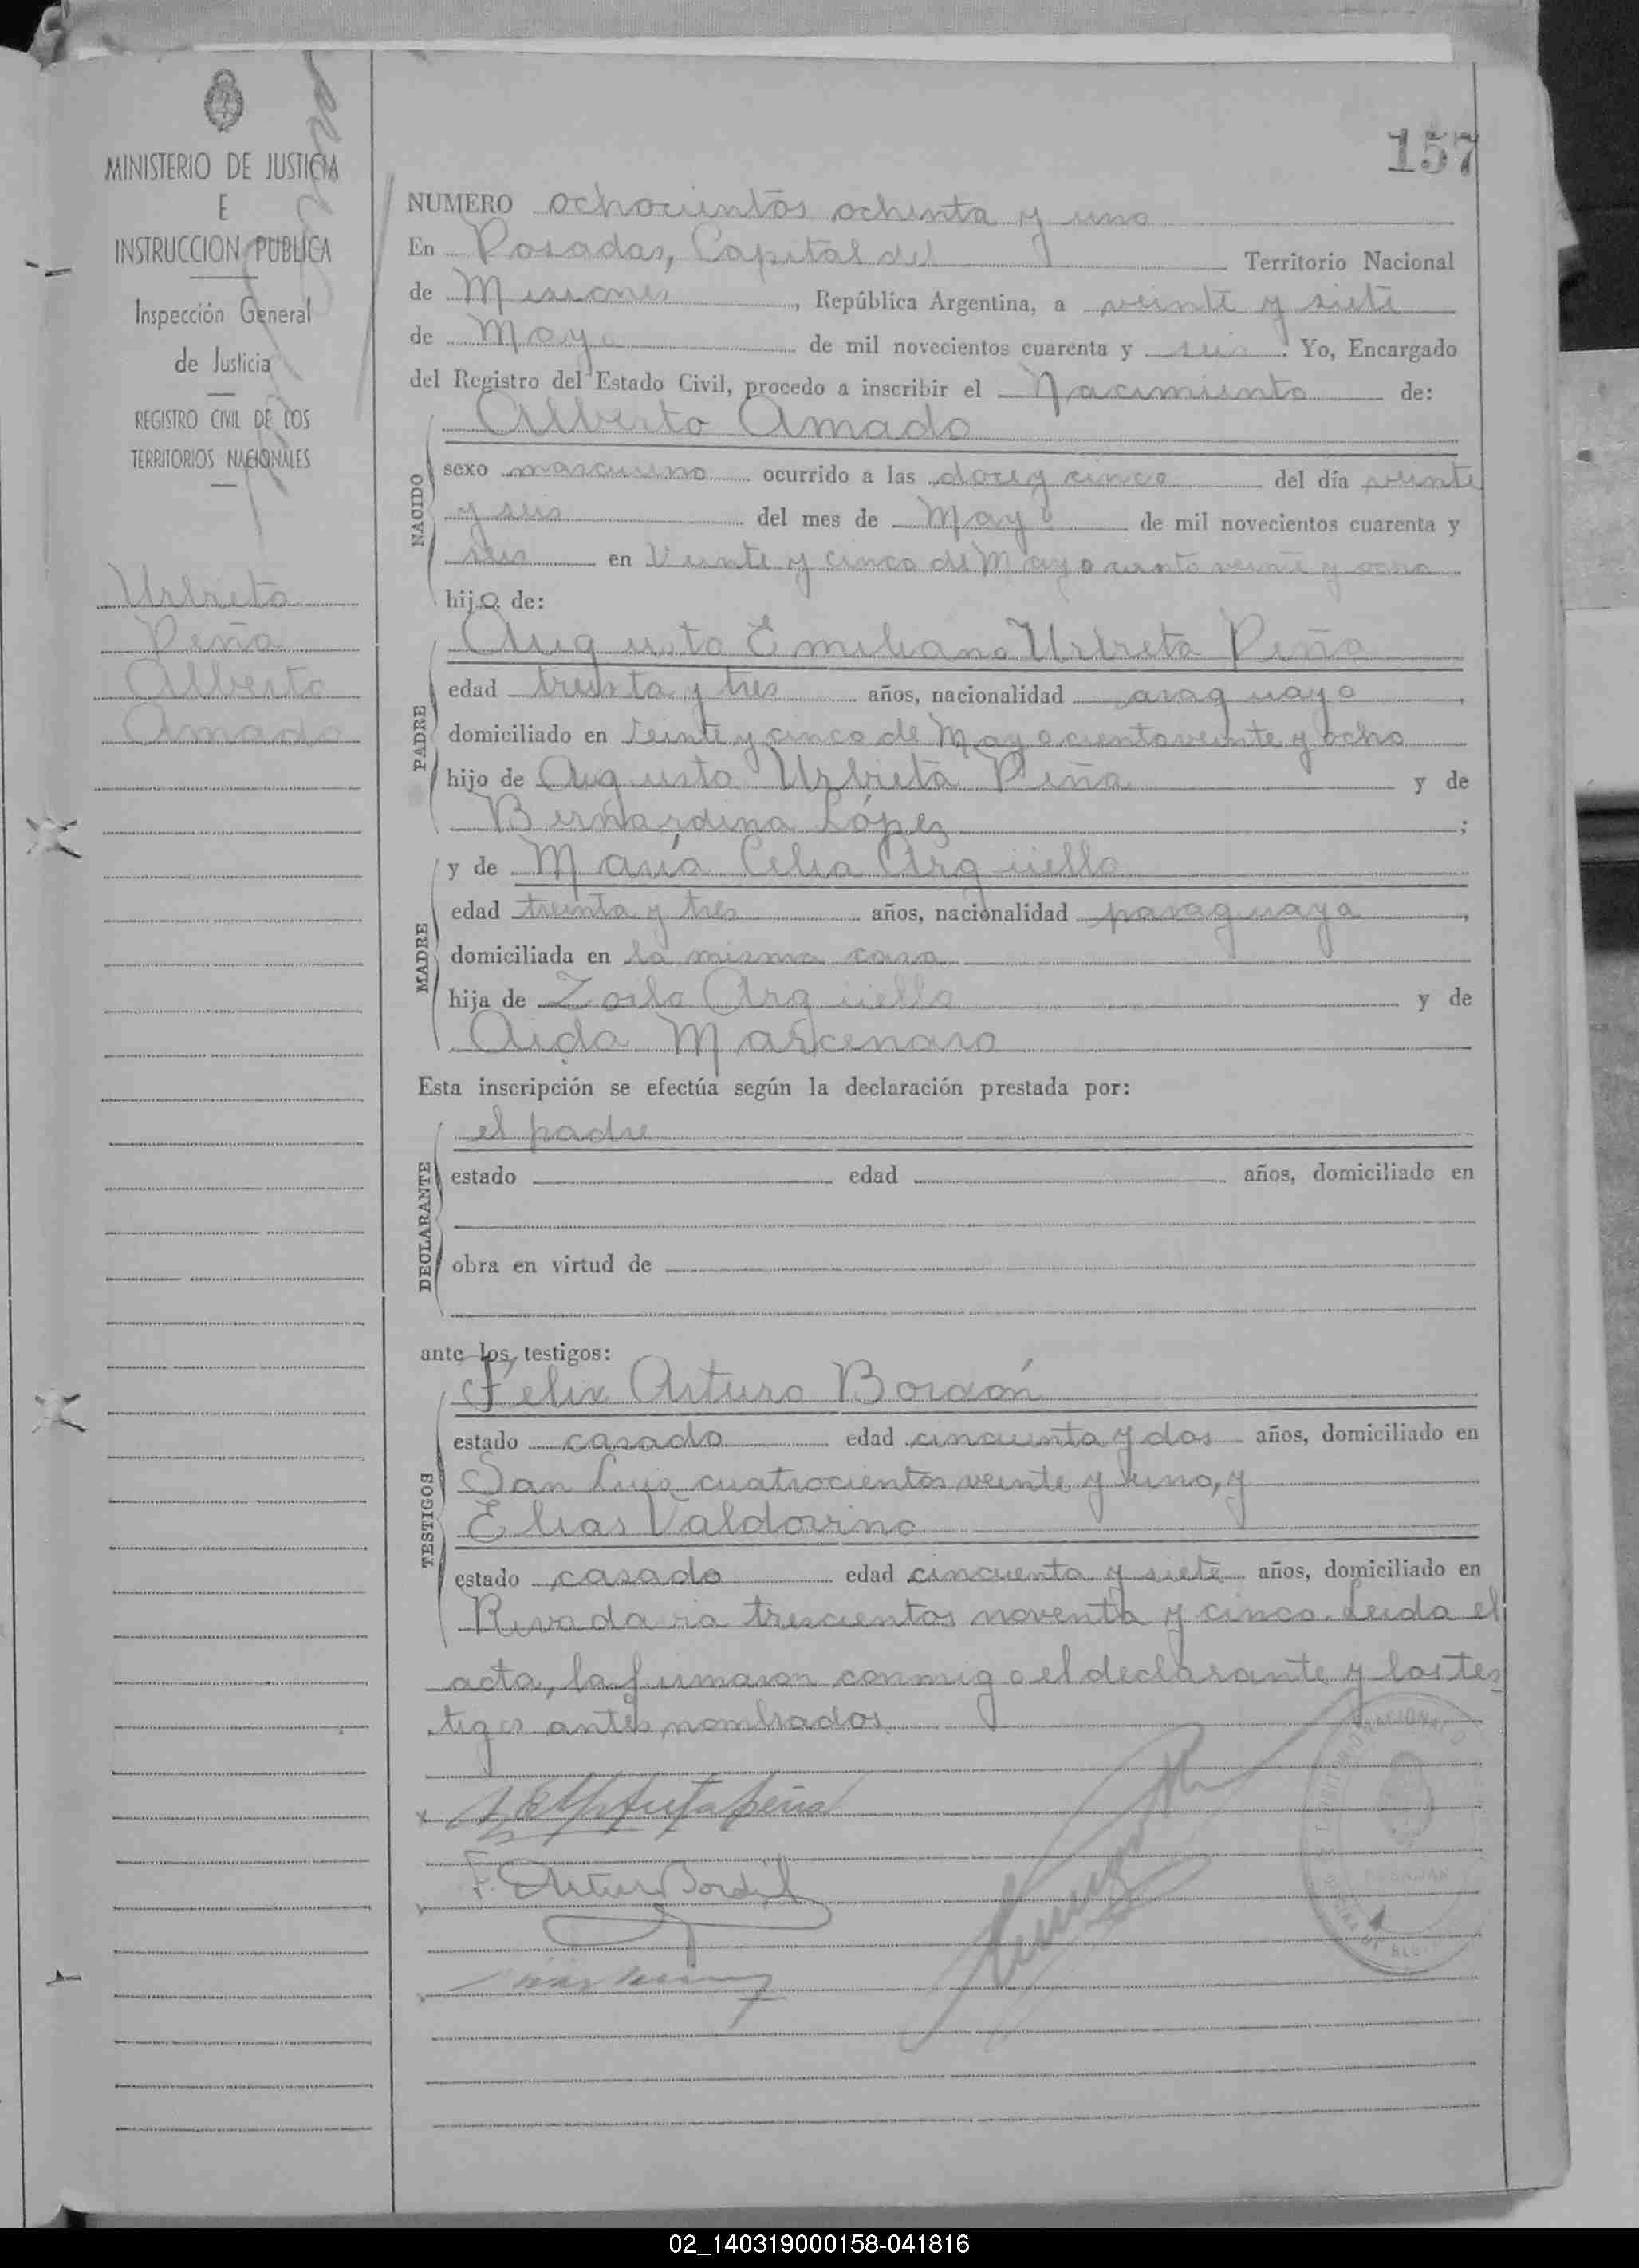 157
MINISTERIO DE JUSTICIA
E
INSTRUCCION PUBLICA
Inspección General
de Justicia
REGISTRO CIVIL DE LOS
TERRITORIOS NACIONALES
Urbieta
Peña
Alberto
Amado
NUMERO ochocientos ochenta y uno
En Posadas, Capital del Territorio Nacional
de Misiones, República Argentina, a veinte y siete
de Mayo de mil novecientos cuarenta y seis. Yo, Encargado
del Registro del Estado Civil, procedo a inscribir el Nacimiento de:
Alberto Amado
NACIDO
sexo masculino ocurrido a las doce y cinco del día veinte
y seis del mes de Mayo de mil novecientos cuarenta y
seis en Veinte y cinco de Mayo ciento veinte y ocho
hijo de:
Augusto Emiliano Urbieta Peña
PADRE
edad treinta y tres años, nacionalidad araguayo,
domiciliado en Veinte y cinco de Mayo ciento veinte y ocho
hijo de Augusto Urbieta Peña y de
Bernardina López;
y de María Celia Argüello
MADRE
edad treinta y tres años, nacionalidad paraguaya,
domiciliada en la misma casa
hija de Zoilo Argüello y de
Aida Marcenaro
Esta inscripción se efectúa según la declaración prestada por:
el padre
DECLARANTE
estado edad años, domiciliado en
obra en virtud de
ante los testigos:
Felix Arturo Bordón
TESTIGOS
estado casado edad cincuenta y dos años, domiciliado en
San Luis cuatrocientos veinte y uno, y
Elias Valdovino
estado casado edad cincuenta y siete años, domiciliado en
Rivadavia trescientos noventa y cinco. Leida el
acta, la firmaron conmigo el declarante y los tes
tigos antes nombrados.
F. Arturo Bordón
02_140319000158-041816